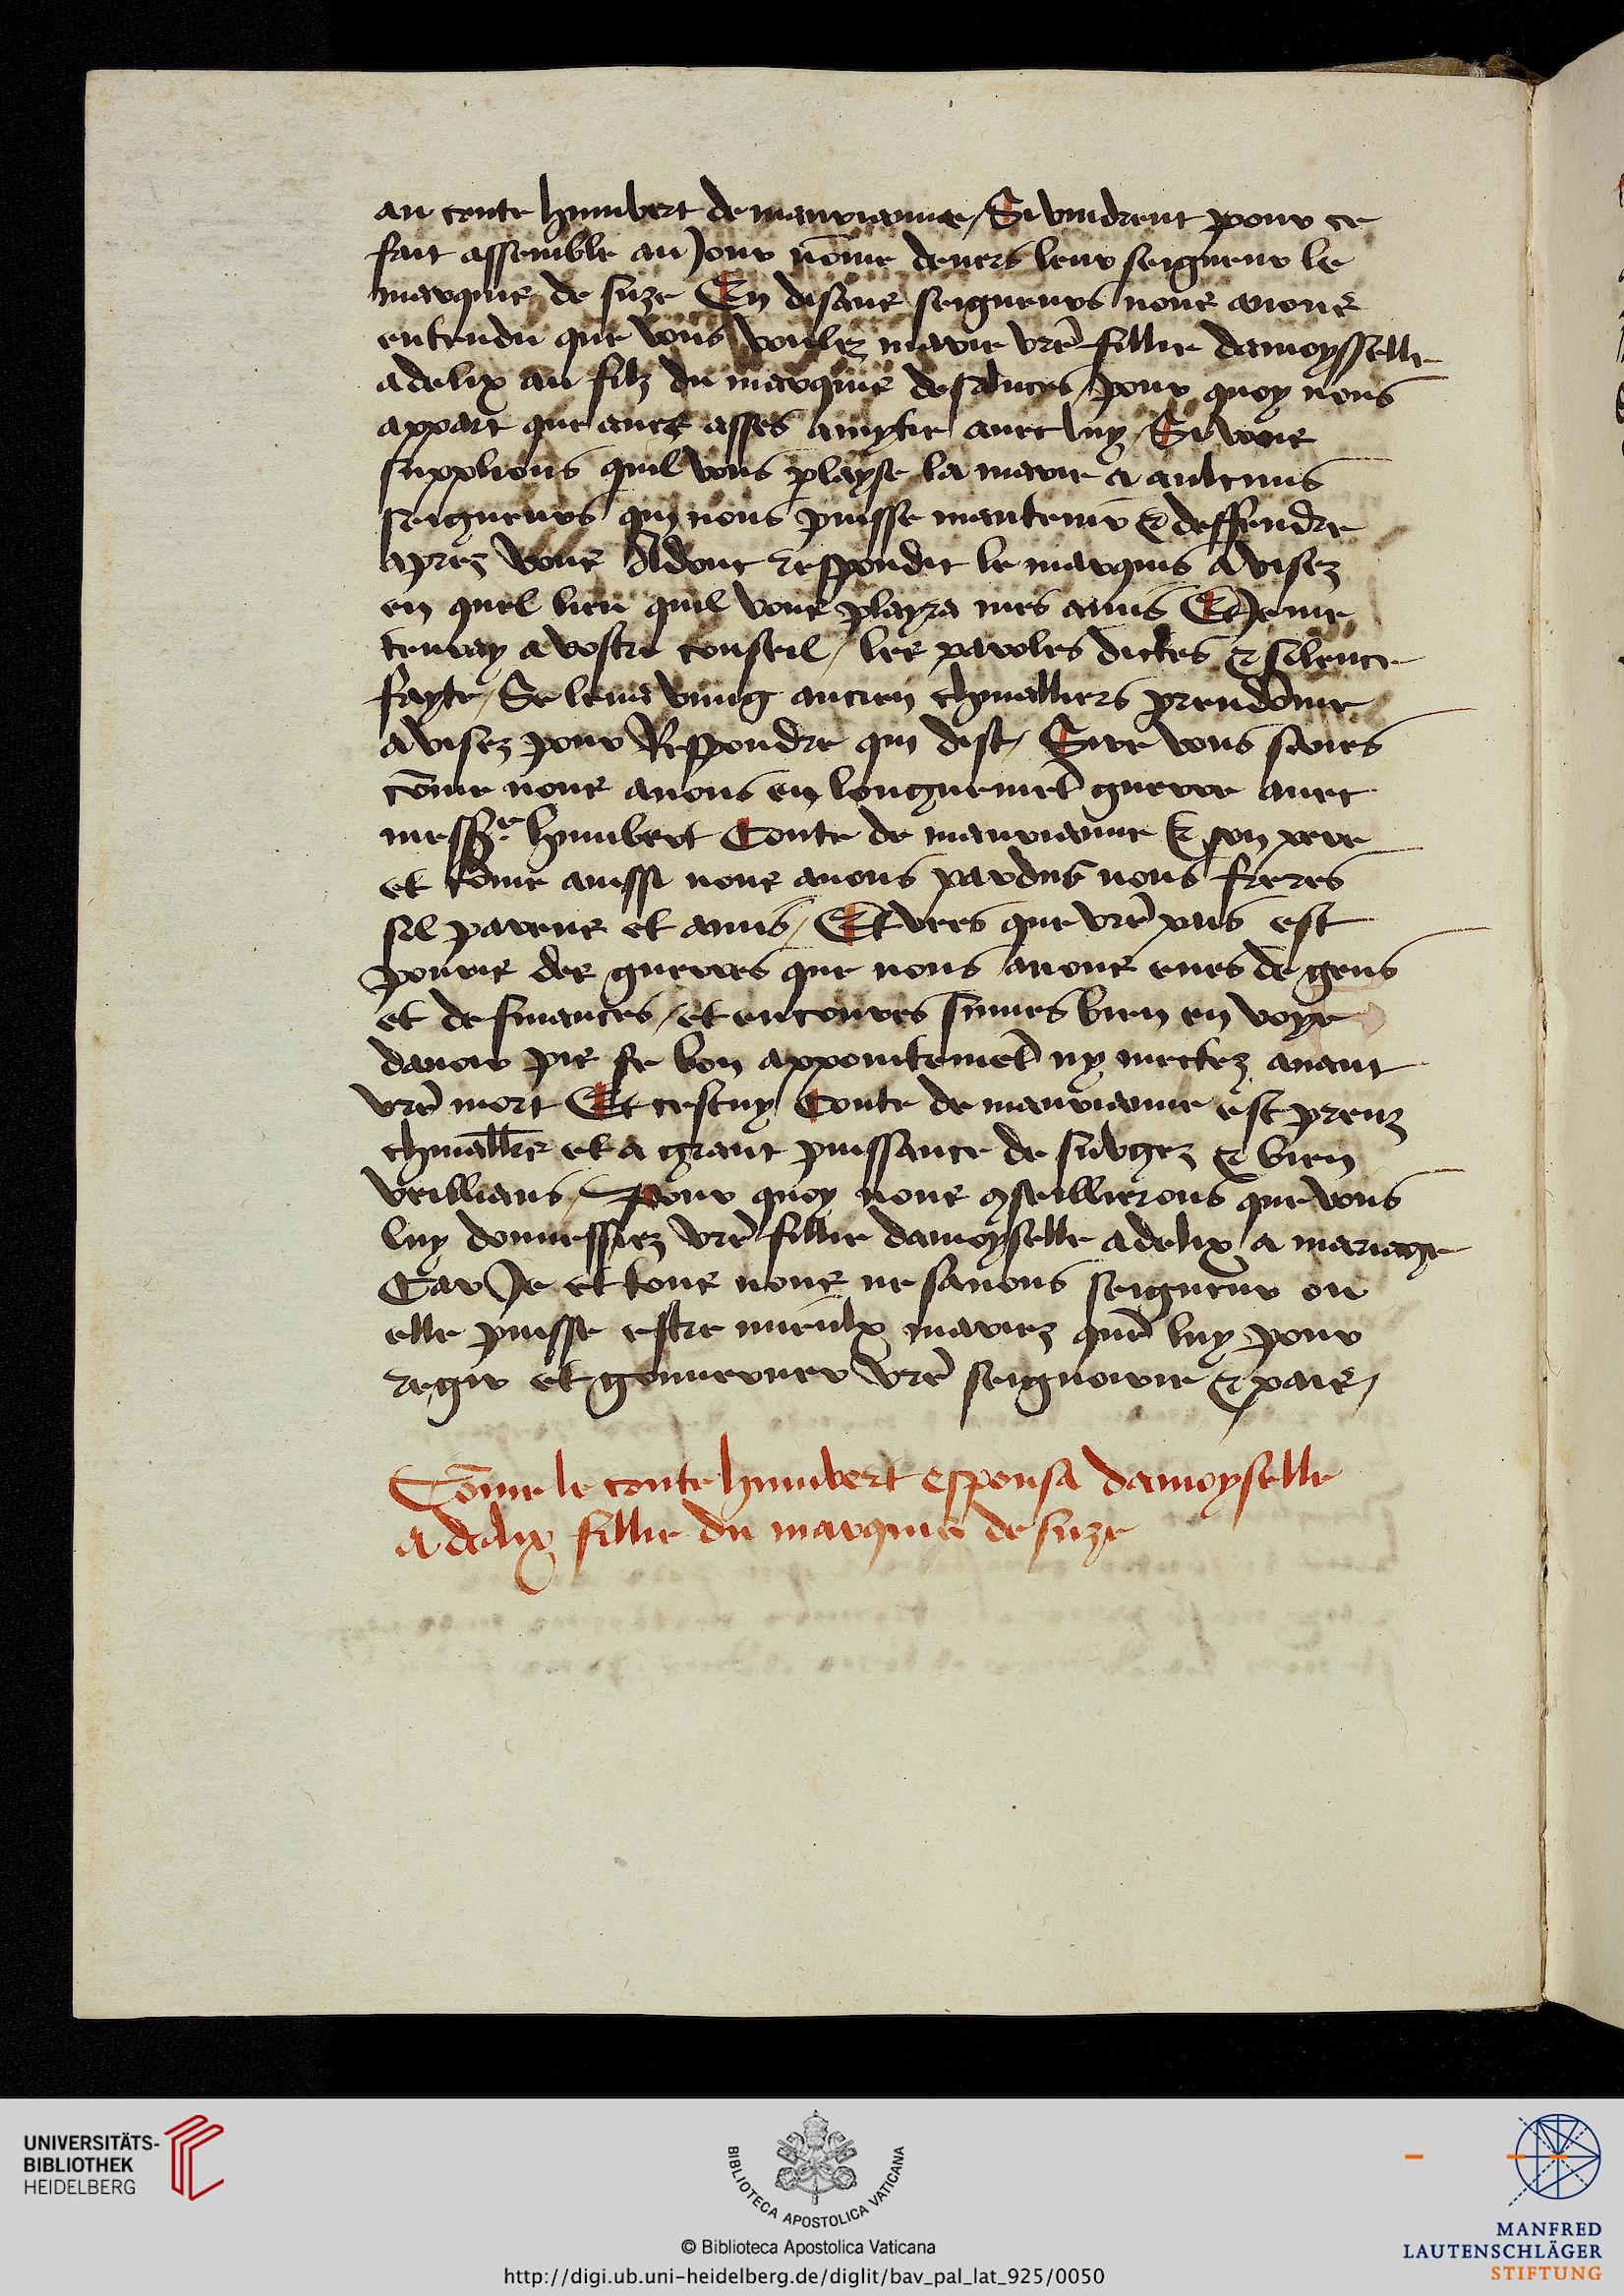 au conte humbert de maurianne / Si vindrent pour ce
fait assemble au Jour nōme deuers leur seigneur le
marquis de suze En disant seigneurs nous auons
entendu que vous voules marie vrē fillie damoysselle
adelix au filz du marquis de saluces / pour quoy nous
appart que aues asses amytie auec luy / Si vous
supplions quil vous playse la marie a aulcuns
seigneurs qui nous puisse mantenir & deffendre
apres vous Adont respondit le marquis avisez
en quel lieu quil vous playra mes amis Et Je me
tenray a vostre conseil / les paroles dictes & silence
fayte / Se leua vnng ancien chiualliers preudōme
avisez pour Respondre qui dist / Sire vous saues
cōme nous auons eu longuemēt guerre auec
messᵉ humbert Conte de maurianne & son pere
et cōme aussi nous auons pardus nous freres
fil parens et amis / Et vees que vrē païs est
poure des guerres que nous auons eues de gens
et de finances / et encoures sumes bien en voye
dauoir pis se bon appointemēt ny mectez auant
vrē mort Et cestuy Conte de maurianne est preuz
chiuallr̄e et a grant puissance de subgez & bien
veillians / Pour quoy nous ꝯseillierons que vous
luy donnessiez vrē fillie damoyselle adelix a mariage
Car Je et tous nous ne sauons seigneur ou
elle puisse estre mieulx mariez quē luy pour
regir et gouuerner vrē seignorie & païs /
Cōme le conte humbert espousa damoyselle
adelix fillie du marquis de suze
UNIVERSITÄTS-
BIBLIOTHEK
HEIDELBERG
BIBLIOTECA APOSTOLICA VATICANA
© Biblioteca Apostolica Vaticana
http://digi.ub.uni-heidelberg.de/diglit/bav_pal_lat_925/0050
MANFRED
LAUTENSCHLÄGER
STIFTUNG